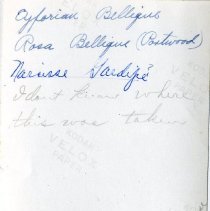 Cyforian Belligus
Rosa Belligus (Boxwood)
Narcisse Gardipé
I don't know where
this was taken
KODAK
VELOX
PAPER